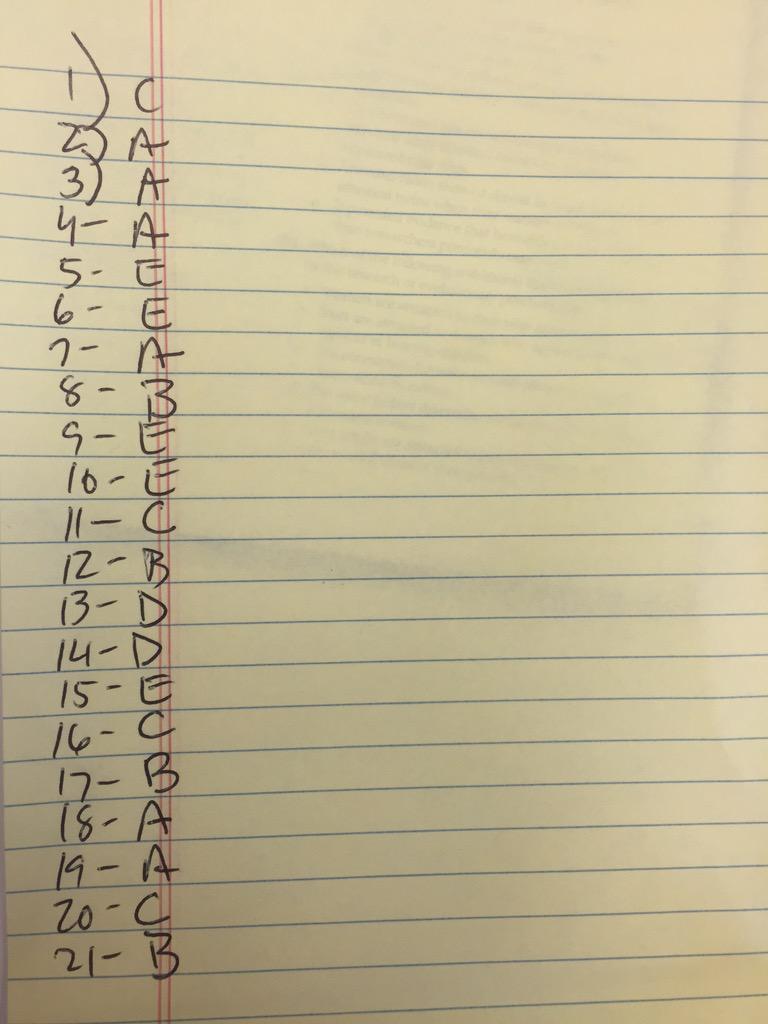 1) C
2) A
3) A
4- A
5- E
6- E
7- A
8- B
9- E
10- E
11- C
12- B
13- D
14- D
15- E
16- C
17- B
18- A
19- A
20- C
21- B